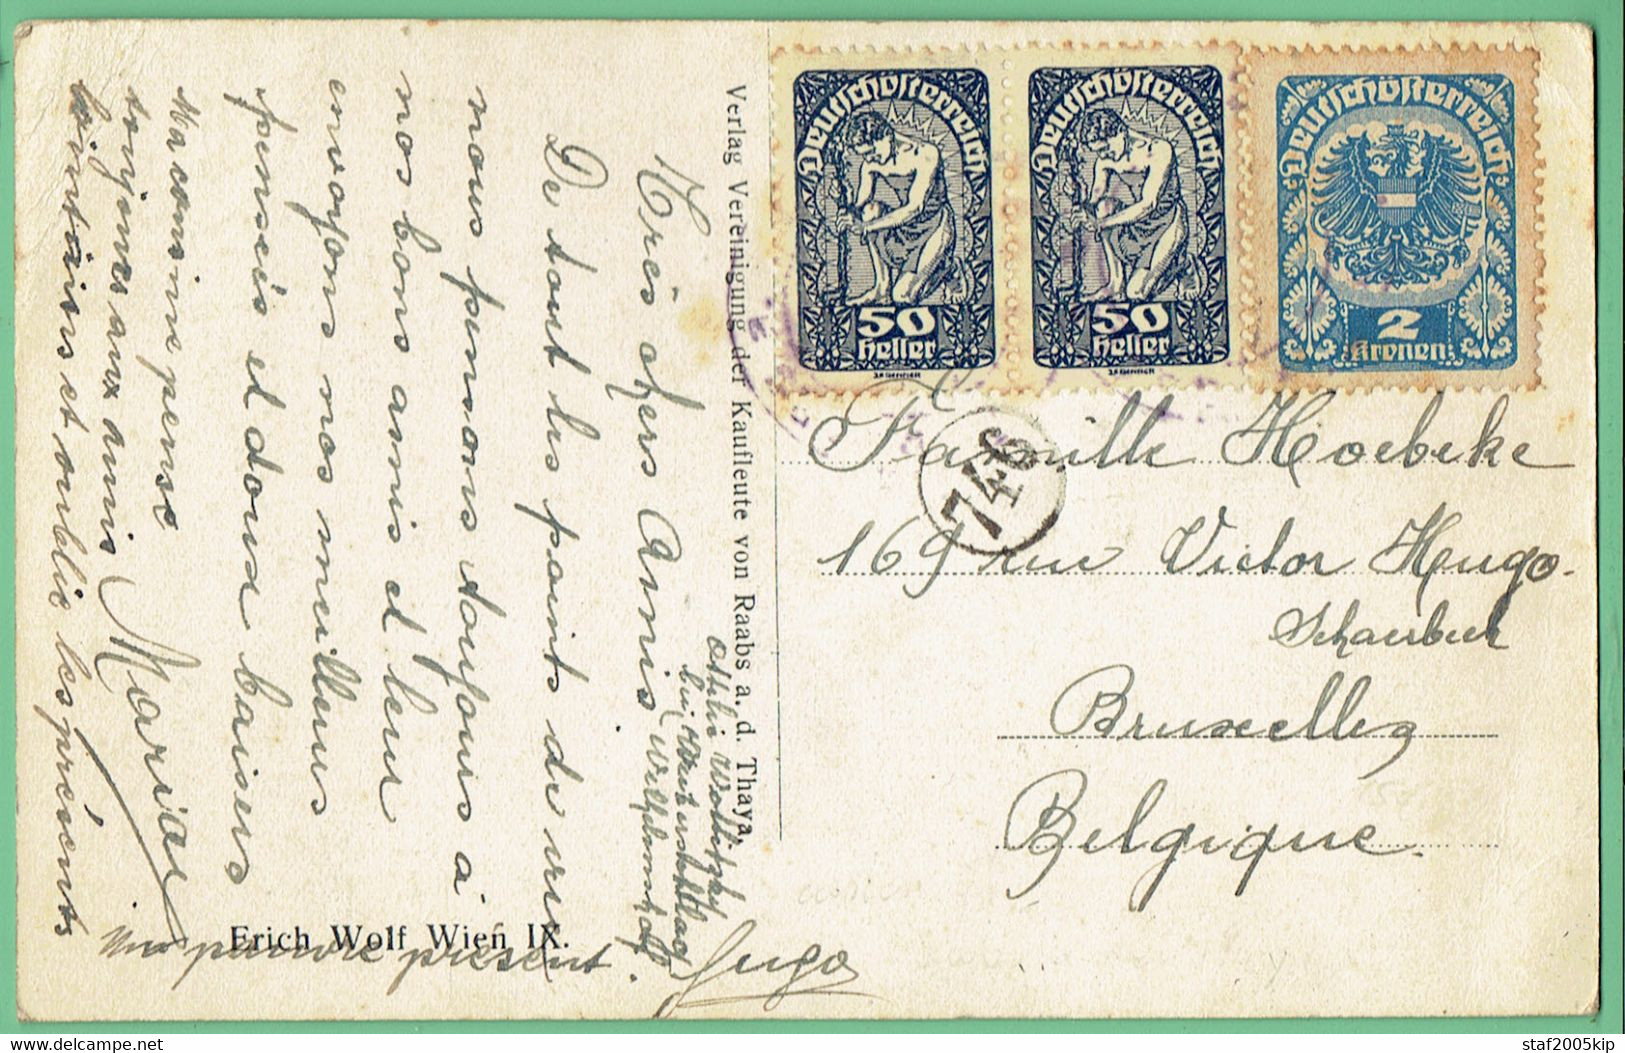 Très chers Amis
De tout les points de vue
nous pensons toujours à
nos bons amis et leur
envoyons nos meilleurs
pensées et doux baisers
Ma cousine pense
toujours aux amis
lointains et oublie les présents
Mariae
Un pauvre present.
Hugo
Erich Wolf Wien IX.
Verlag Vereinigung der Kaufleute von Raabs a. d. Thaya.
Deutschösterreich
50
Heller
Deutschösterreich
50
Heller
Deutschösterreich
2
Kronen
746
Famille Hoebeke
169 rue Victor Hugo.
Schaerbeek
Bruxelles
Belgique.
staf2005kip